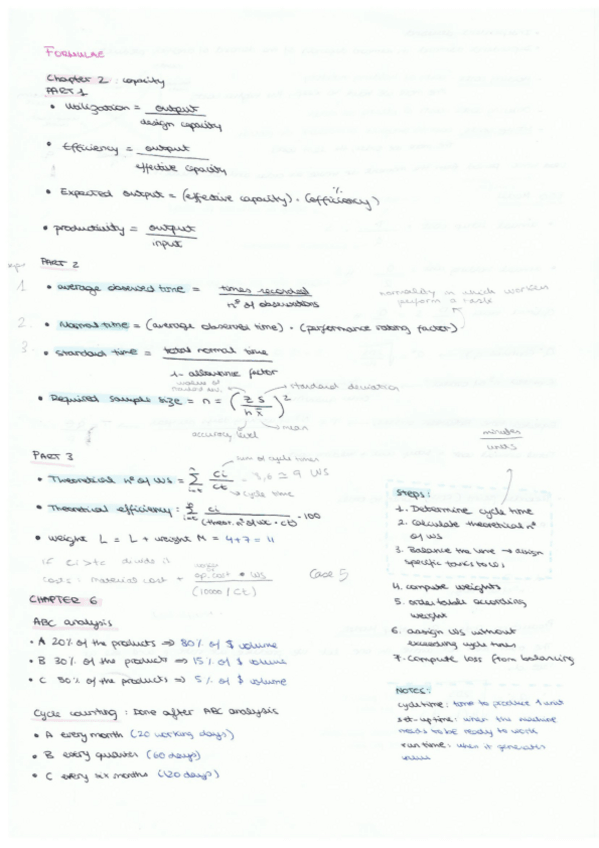 FORMULAE
Chapter 2: capacity
PART 1
• Utilization = output / design capacity
• Efficiency = output / effective capacity
• Expected output = (effective capacity) · (efficiency) %
• productivity = output / input
PART 2
1 • average observed time = times recorded / nº of observations
normality in which workers
perform a task
2. • Normal time = (average observed time) · (performance rating factor)
3. • Standard time = total normal time / 1 - allowance factor
standard deviation
• Required sample size = n = (z s / h x̄)²
accuracy level
mean
minutes / units
PART 3
sum of cycle times
• Theoretical nº of WS = Σ ci / ct 9 WS
cycle time
• Theoretical efficiency: Σ ci / (theor. nº of WS · ct) · 100
• weight L = L + weight M = 4+7 = 11
if ci > tc divide it
costs: material cost + op. cost * WS / (10000 / ct) Case 5
Steps:
1. Determine cycle time
2. Calculate theoretical nº
of WS
3. Balance the line → assign
specific tasks to WS
4. compute weights
5. order table according
weight
6. assign WS without
exceeding cycle times
7. compute loss from balancing
CHAPTER 6
ABC analysis
• A 20% of the products ⇒ 80% of $ volume
• B 30% of the products ⇒ 15% of $ volume
• C 50% of the products ⇒ 5% of $ volume
Cycle counting: Done after ABC analysis
• A every month (20 working days)
• B every quarter (60 days)
• C every six months (120 days)
NOTES:
cycle time: time to produce 1 unit
set-up time: when the machine
needs to be ready to work
run time: when it generates
value